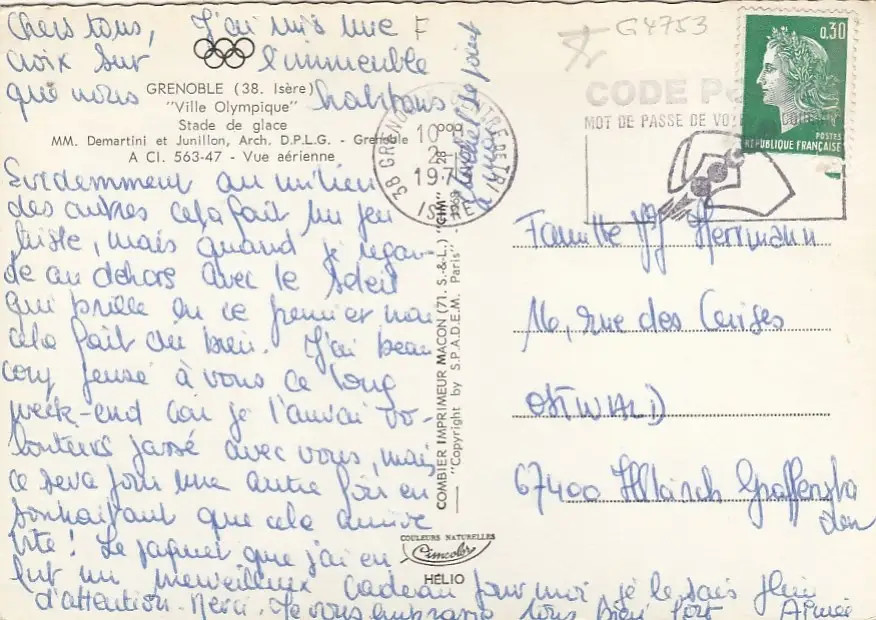 Chers tous, J'ai mis une
croix sur l'immeuble
que nous habitons
F
G4753
GRENOBLE (38. Isère)
"Ville Olympique"
Stade de glace
MM. Demartini et Junillon, Arch. D.P.L.G. - Grenoble
A CI. 563-47 - Vue aérienne
Evidemment au milieu
des autres cela fait un peu
triste, mais quand je regar-
de au dehors avec le soleil
qui brille en ce premier mai
cela fait du bien. J'ai beau
coup pensé à vous ce long
week-end car je l'aurai vo-
lontiers passé avec vous, mais
ce sera pour une autre fois en
souhaitant que cela arrive
vite! Le paquet que j'ai eu
fut un merveilleux cadeau pour moi, je le sais plein
d'attention. Merci. Je vous embrasse tous bien fort Aimée
COMBIER IMPRIMEUR MACON (71. S.-&-L.) "CIM"
"Copyright by S.P.A.D.E.M. Paris"
COULEURS NATURELLES
Cimcolor
HÉLIO
38 GRENOBLE CENTRE DE TRI
10H00
2-5
197
ISERE
CODE PO
MOT DE PASSE DE VO
0,30
POSTES
REPUBLIQUE FRANÇAISE
Famille Herrmann
16, rue des Cerises
OSTWALD
67400 Illkirch Graffensta
den